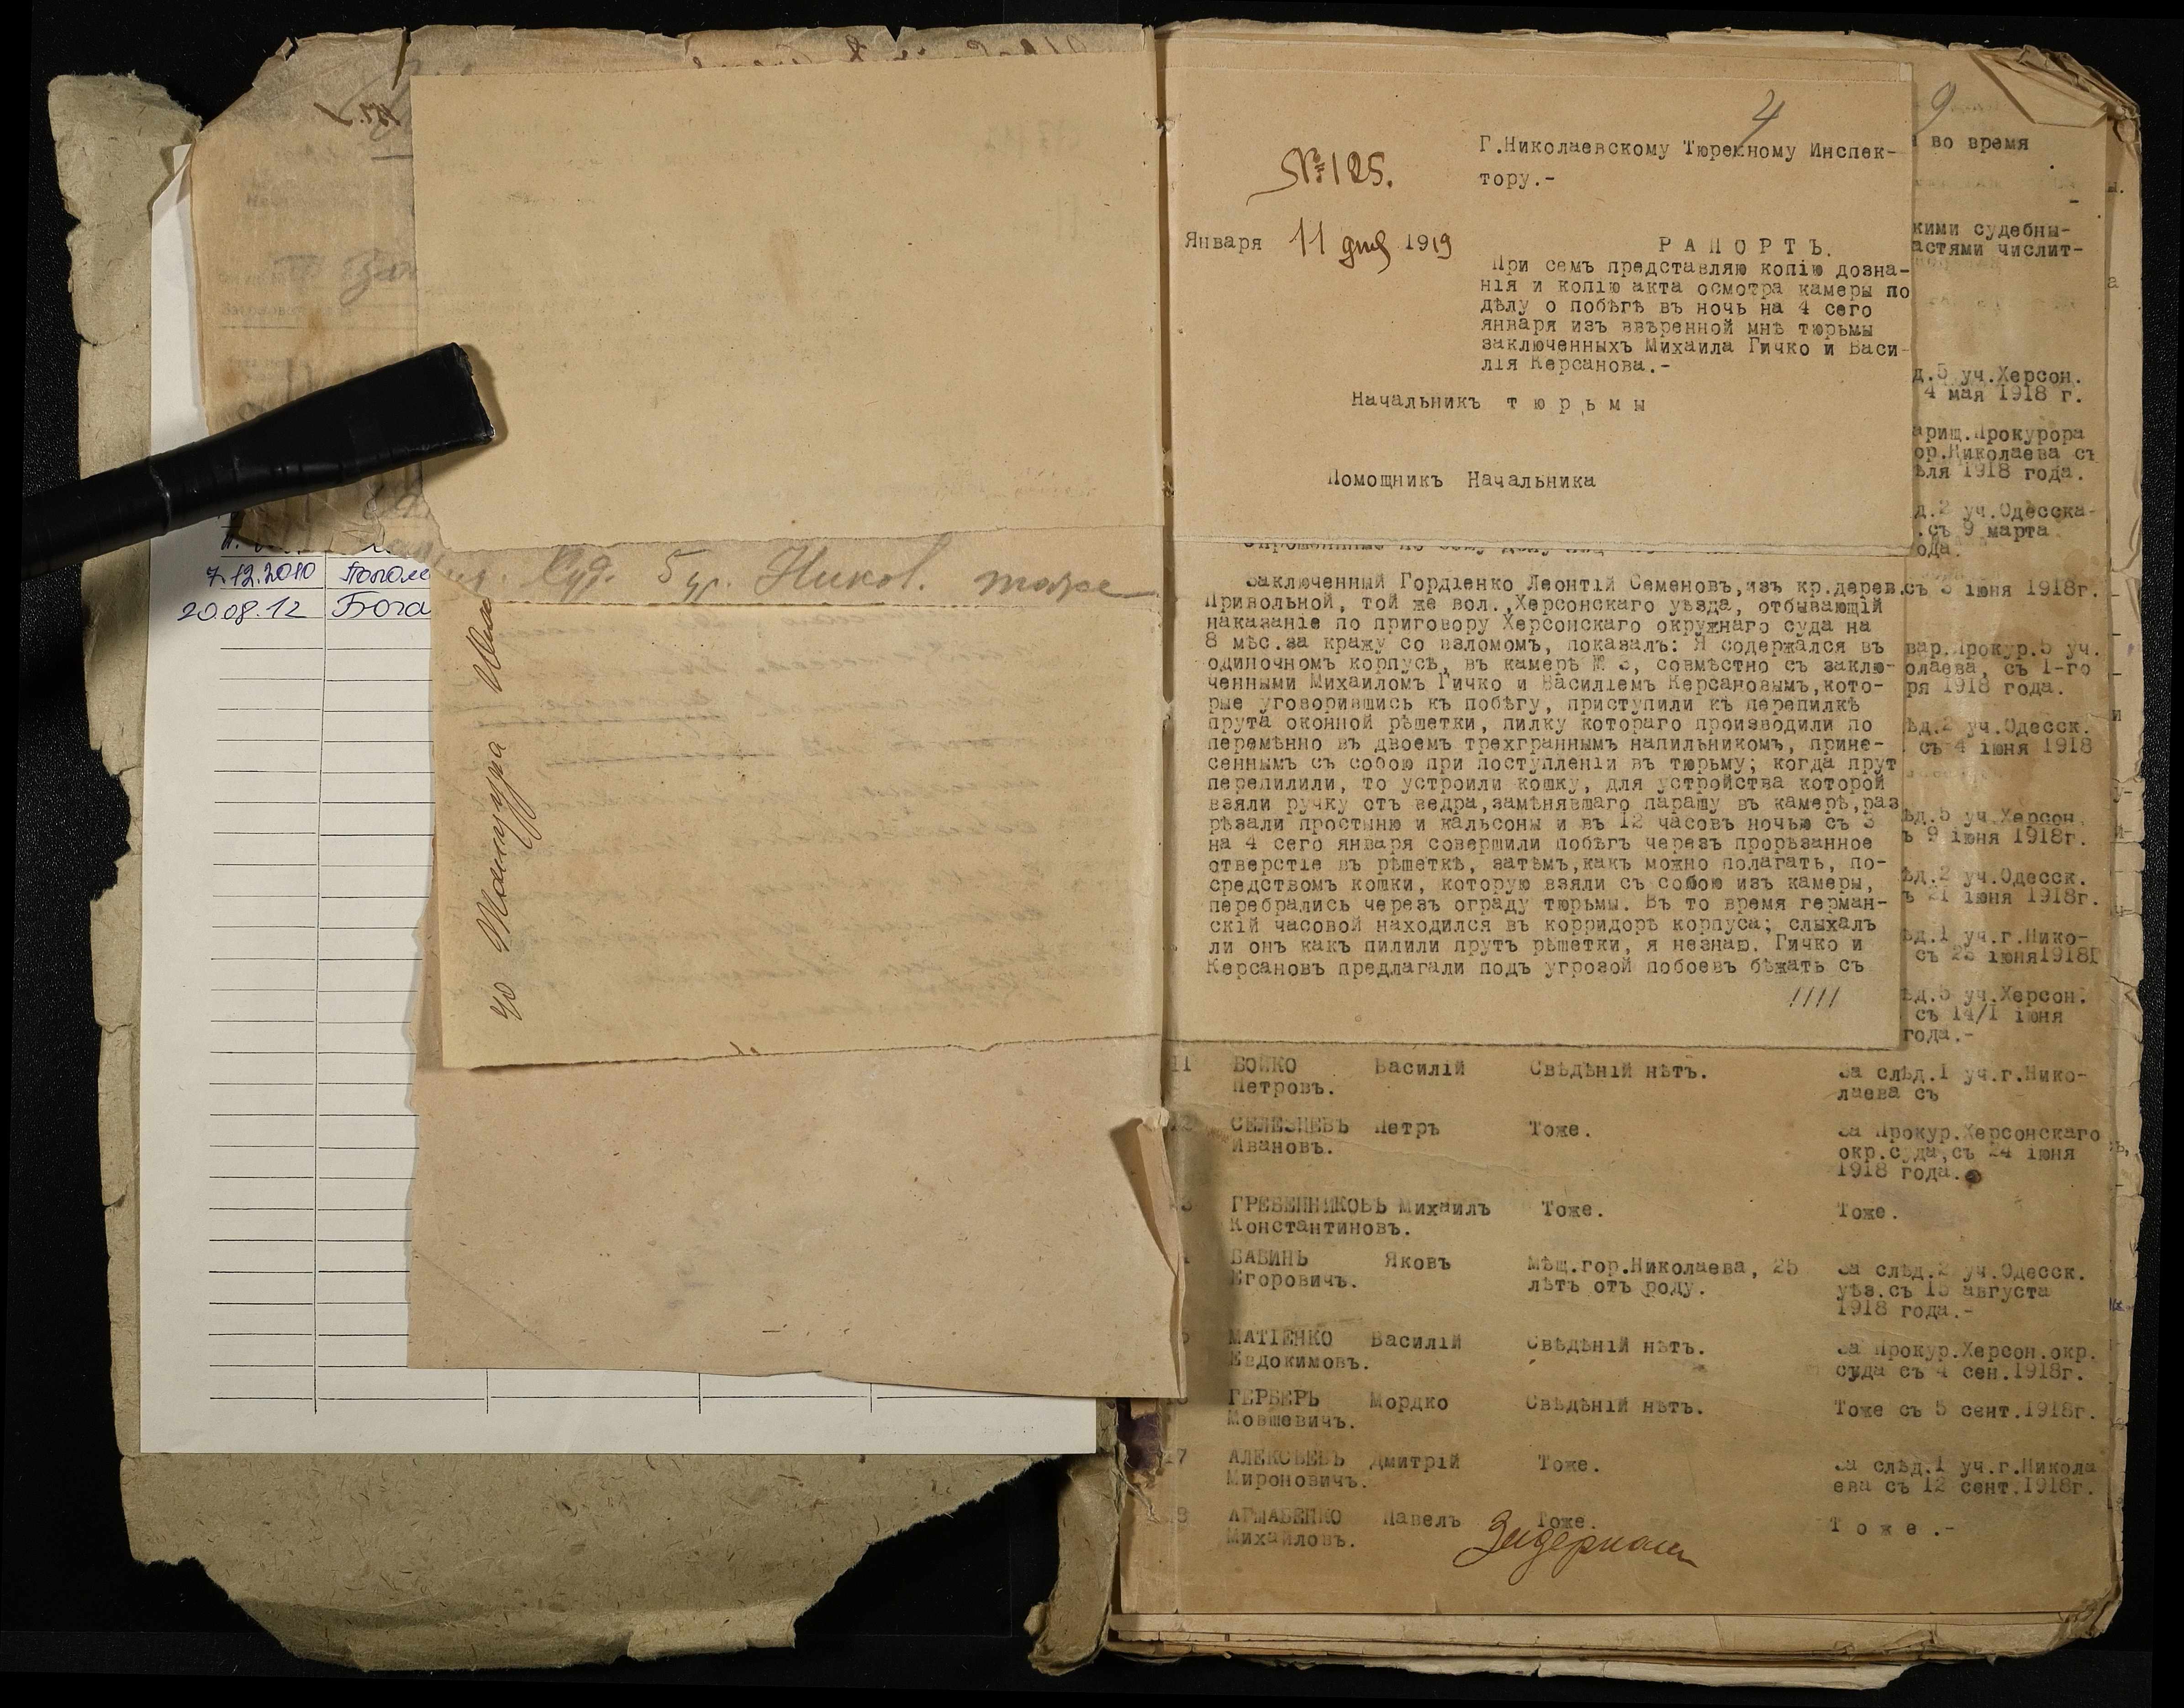 7.12.2010
20.08.12
Суд. 5 уч. Никол. тоже
4
№ 125.
Г.Николаевскому Тюремному Инспек-
тору.-
Января 11 дня 1919
Р А П О Р Т Ъ.
При семъ представляю копію дозна-
нія и копію акта осмотра камеры по
дѣлу о побѣгѣ въ ночь на 4 сего
января изъ ввѣренной мнѣ тюрьмы
заключенныхъ Михаила Гичко и Васи-
лія Керсанова.-
Начальникъ т ю р ь м ы
Помощникъ Начальника
Заключенный Гордіенко Леонтій Семеновъ,изъ кр.дерев.
Привольной, той же вол.,Херсонскаго уѣзда, отбывающій
наказаніе по приговору Херсонскаго окружнаго суда на
8 мѣс.за кражу со взломомъ, показалъ: Я содержался въ
одиночномъ корпусѣ, въ камерѣ № 3, совмѣстно съ заклю-
ченными Михаиломъ Гичко и Василіемъ Керсановымъ,кото-
рые уговорившись къ побѣгу, приступили къ перепилкѣ
прута оконной рѣшетки, пилку котораго производили по
перемѣнно въ двоемъ трехграннымъ напильникомъ, прине-
сеннымъ съ собою при поступленіи въ тюрьму; когда прут
перепилили, то устроили кошку, для устройства которой
взяли ручку отъ ведра,замѣнявшаго парашу въ камерѣ,раз
рѣзали простыню и кальсоны и въ 12 часовъ ночью съ 3
на 4 сего января совершили побѣгъ черезъ прорѣзанное
отверстіе въ рѣшеткѣ, затѣмъ,какъ можно полагать, по-
средствомъ кошки, которую взяли съ собою изъ камеры,
перебрались черезъ ограду тюрьмы. Въ то время герман-
скій часовой находился въ корридорѣ корпуса; слыхалъ
ли онъ какъ пилили прутъ рѣшетки, я незнаю. Гичко и
Керсановъ предлагали подъ угрозой побоевъ бѣжать съ
////
9
во время
кими судебны-
астями числит-
д.5 уч.Херсон.
4 мая 1918 г.
арищ.Прокурора
ор.Николаева съ
ѣля 1918 года.
д.2 уч.Одесска-
.съ 9 марта
ода.
съ 3 іюня 1918г.
вар.Прокур.5 уч.
олаева, съ 1-го
ря 1918 года.
ѣд.2 уч.Одесск.
съ 4 іюня 1918
ѣд.5 уч.Херсон.
ъ 9 іюня 1918г.
ѣд.2 уч.Одесск.
ъ 21 іюня 1918г.
ѣд.1 уч.г.Нико-
съ 23 іюня1918г
ѣд.5 уч.Херсон.
съ 14/1 іюня
года.-
11 БОЙКО Василій Свѣдѣній нѣтъ. За слѣд.1 уч.г.Нико-
Петровъ. лаева съ
СЕЛЕЗНЕВЪ Петръ Тоже. За Прокур.Херсонскаго
Ивановъ. окр.суда,съ 24 іюня
1918 года.
ГРЕБЕННИКОВЪ Михаилъ Тоже. Тоже.
Константиновъ.
БАБИНЪ Яковъ Мѣщ.гор.Николаева, 25 За слѣд.2 уч.Одесск.
Егоровичъ. лѣтъ отъ роду. уѣз.съ 15 августа
1918 года.-
МАТІЕНКО Василій Свѣдѣній нѣтъ. За Прокур.Херсон.окр.
Евдокимовъ. суда съ 4 сен.1918г.
ГЕРБЕРЪ Мордко Свѣдѣній нѣтъ. Тоже съ 5 сент.1918г.
Мовшевичъ.
17 АЛЕКСѢЕВЪ Дмитрій Тоже. За слѣд.1 уч.г.Никола
Мироновичъ. ева съ 12 сент.1918г.
Павелъ Тоже. Т о ж е .-
Михайловъ.